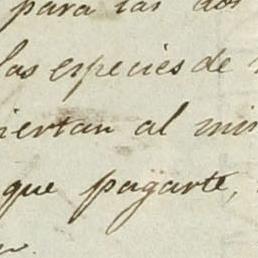 para las dos
las especies de
iertan al mis
que pagarte,